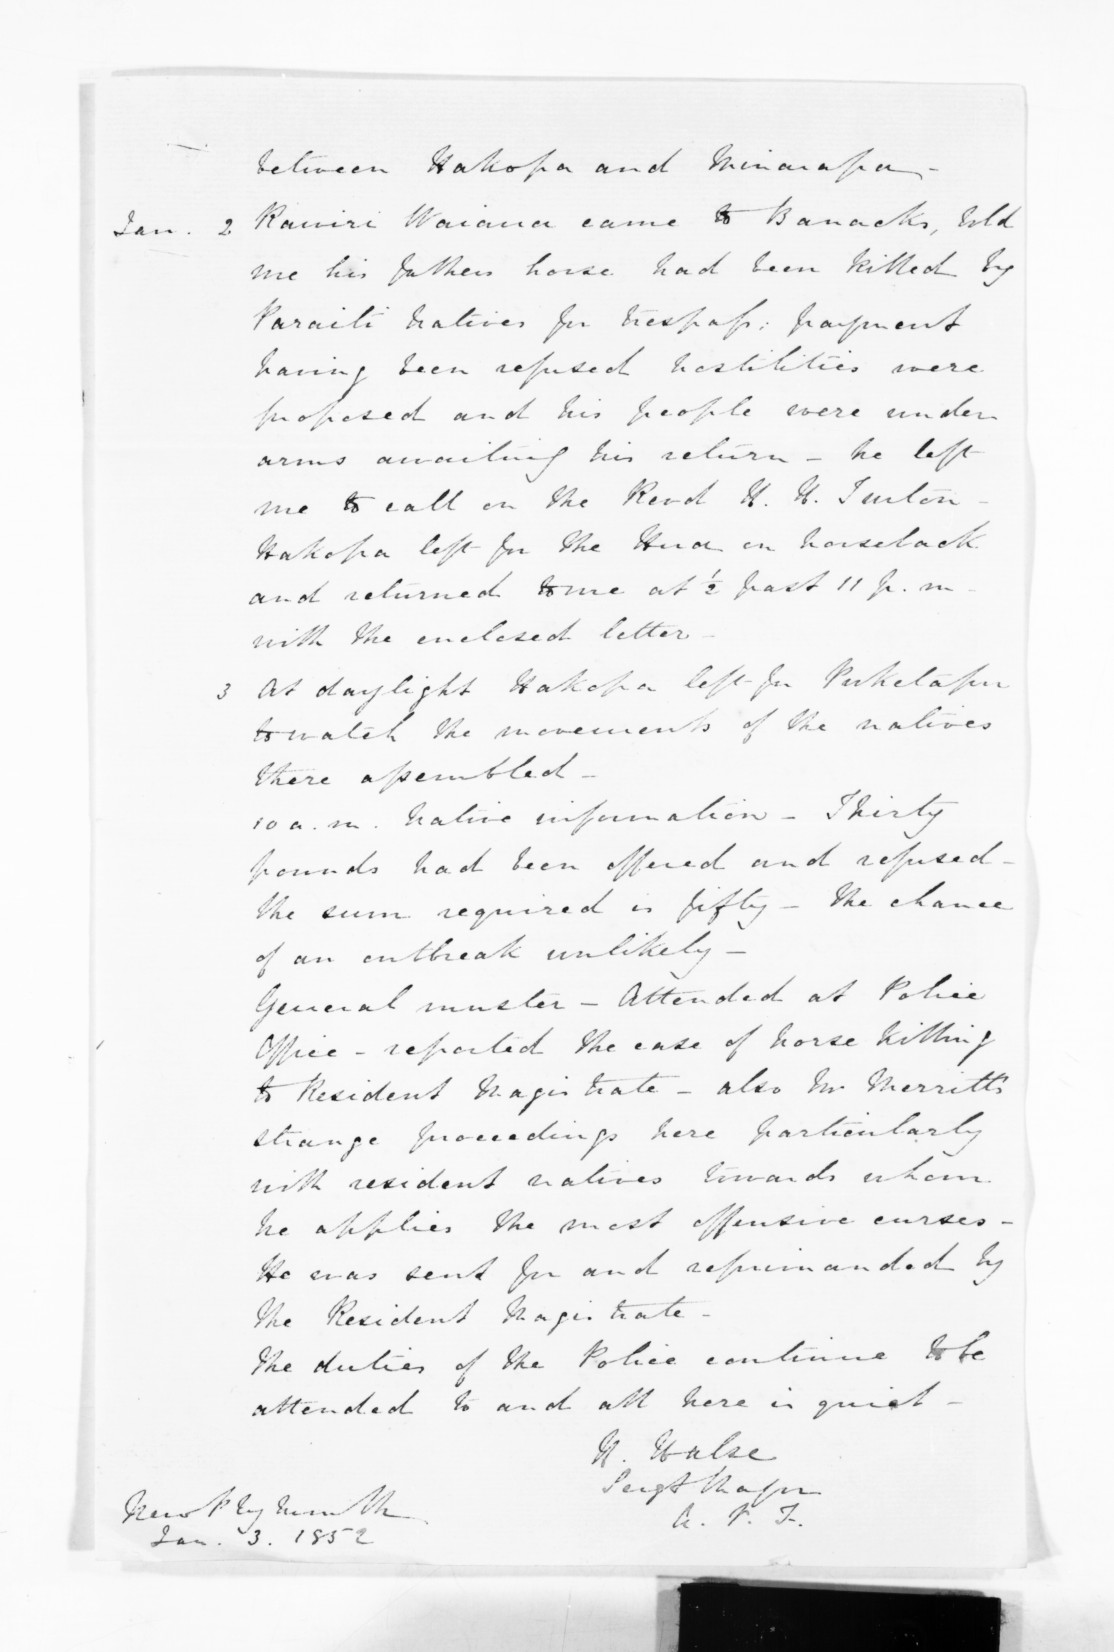 between Hakopa and Minarapa -
Jan. 2 Rawiri Waiaua came to Barracks, told
me his fathers horse had been killed by
Paraiti natives for trespass; payment
having been refused hostilities were
proposed and his people were under
arms awaiting his return - he left
me to call on the Revd H. H. Turton -
Hakopa left for the Hua on horseback
and returned to me at ½ past 11 p.m -
with the enclosed letter -
3 At daylight Hakopa left for Puketapu
to watch the movements of the natives
there assembled -
10 a.m. Native information - Thirty
pounds had been offered and refused -
the sum required is fifty - the chance
of an outbreak unlikely -
General muster - Attended at Police
Office - reported the case of horse killing
to Resident Magistrate - also Mr Merritt's
strange proceedings here particularly
with resident natives towards whom
he applies the most offensive curses -
He was sent for and reprimanded by
the Resident Magistrate -
The duties of the Police continue to be
attended to and all here is quiet -
H. Halse
Sergt Major
A. P. F.
New Plymouth
Jan. 3. 1852